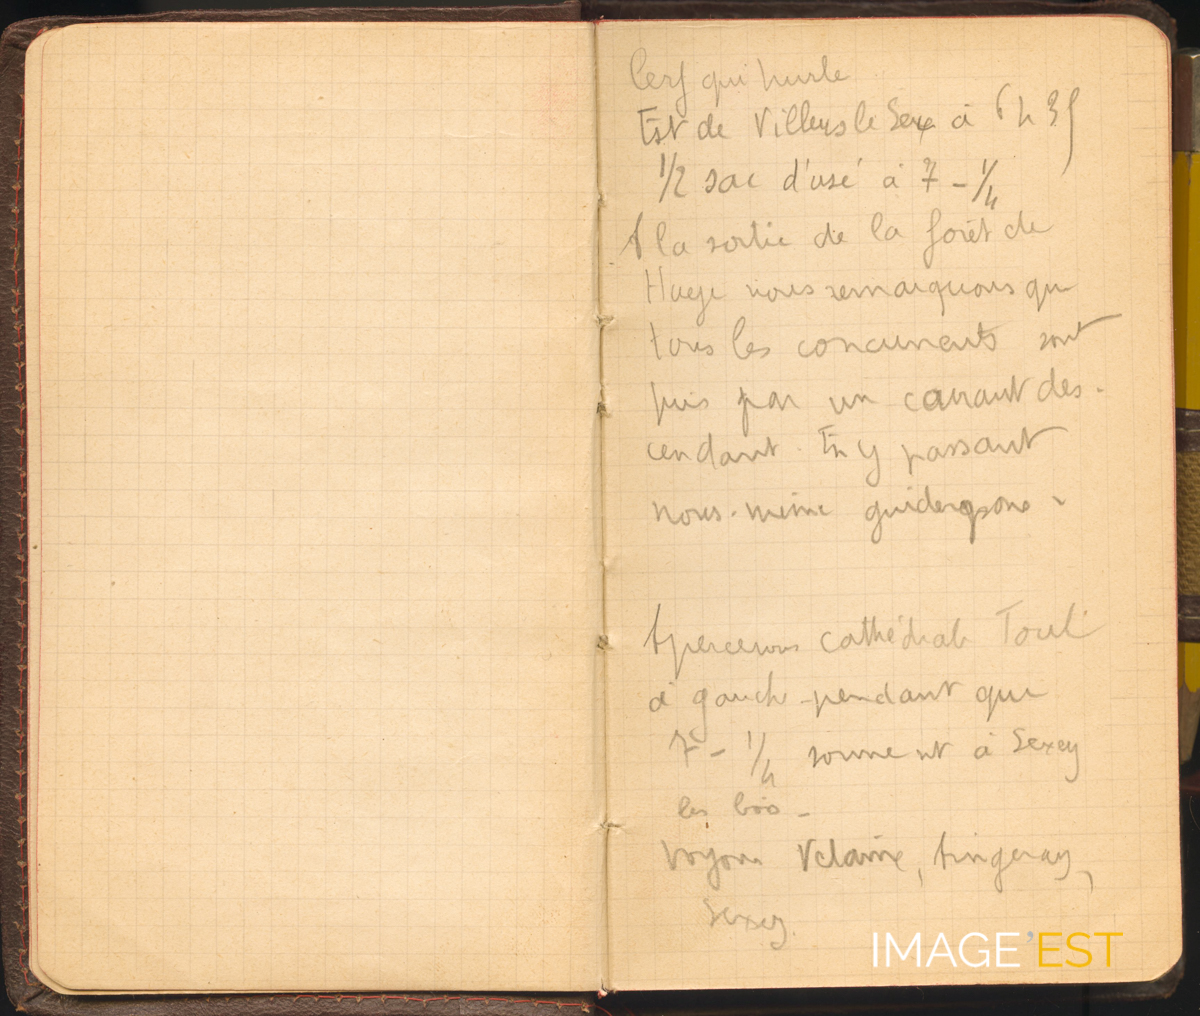 Cerf qui hurle
Est de Villers le Sec à 6h 35
1/2 sac d'usé à 7 - 1/4
A la sortie de la forêt de
Haye nous remarquons que
tous les concurrents sont
pris par un courant des-
cendant. En y passant
nous-même
Apercevons cathédrale Toul
à gauche pendant que
7 - 1/4 sonnent à Sexey
les bois -
Voyons Velaine, Aingeray,
Sexey.
IMAGE'EST